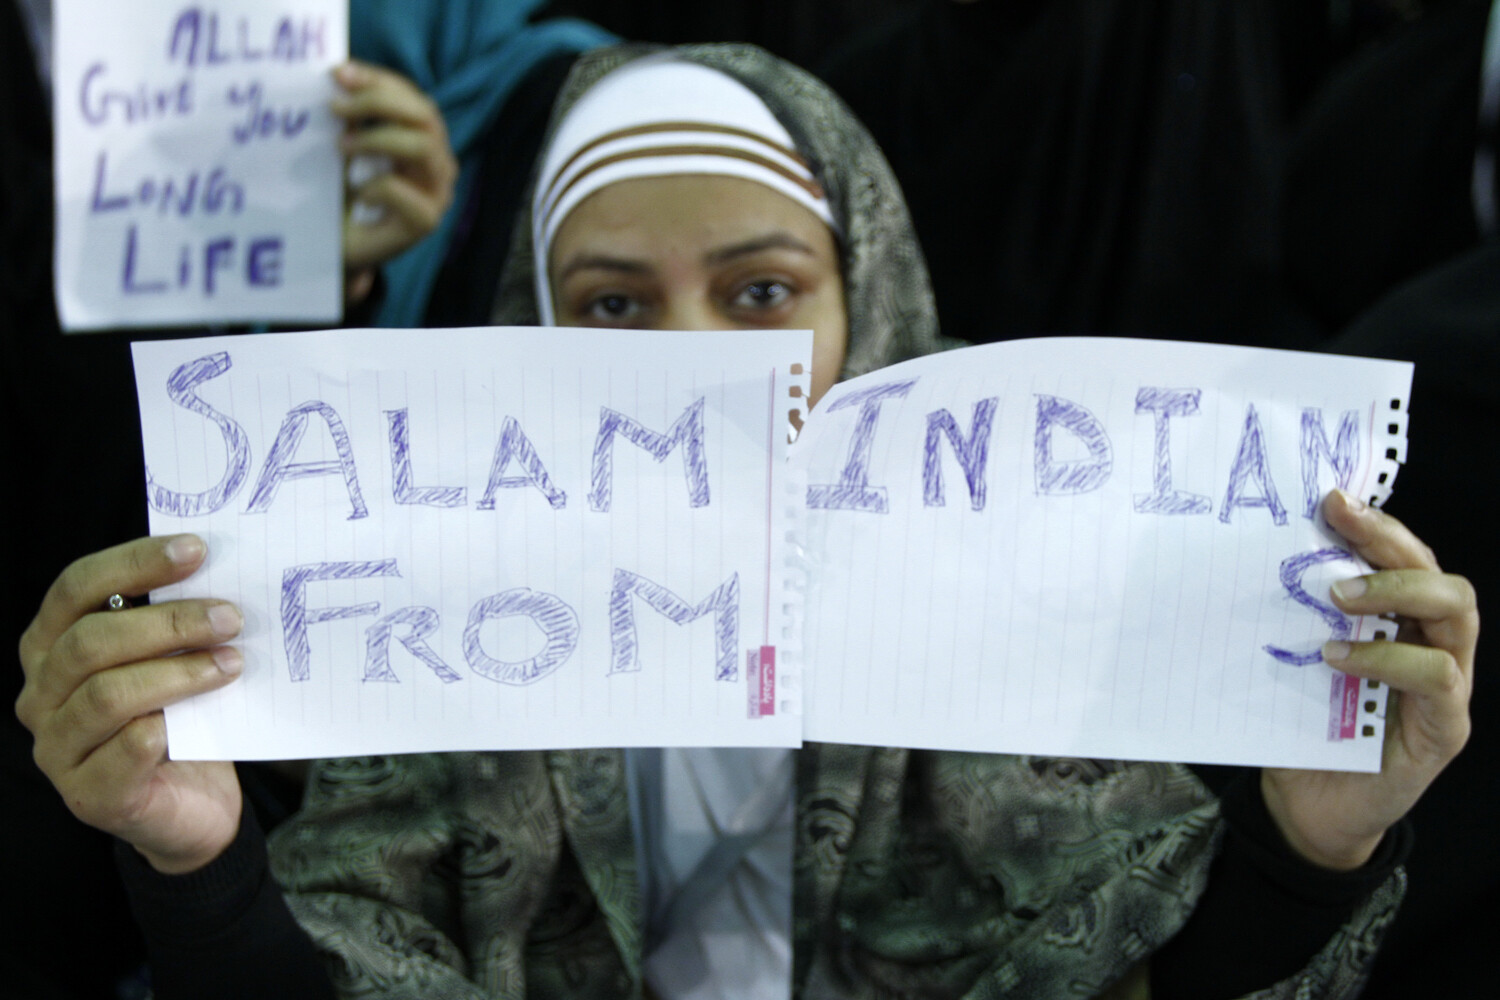 ALLAH
Give you
LONG
LIFE
SALAM
FROM
INDIAN
S